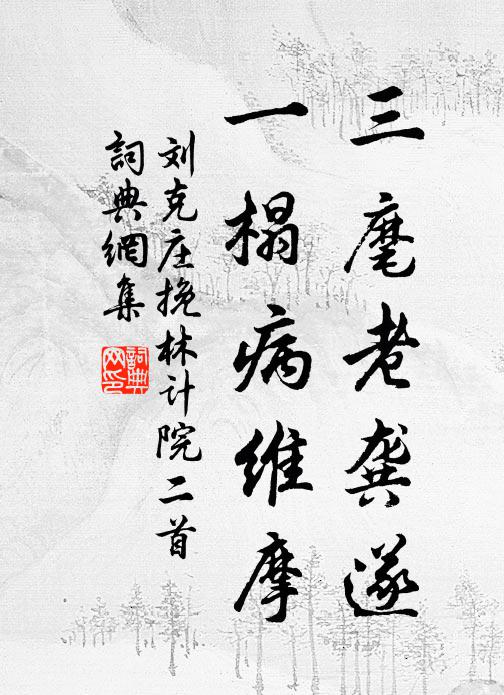 三麾老龚遂
一榻病维摩
刘克庄挽林计院二首
詞典網集
詞典网印